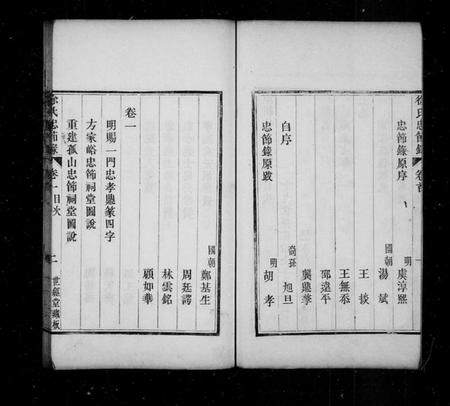 徐氏忠節錄
卷首
忠節錄原序
明 虞淳熙
國朝 湯斌
王掞
王無忝
邵遠平
龔鼎孳
自序
裔孫 旭旦
忠節錄原跋
明 胡孝
國朝 鄭基生
周廷諤
林雲銘
顧如華
卷一
明賜一門忠孝龞篆四字
方家峪忠節祠堂圖說
重建孤山忠節祠堂圖說
徐氏忠節錄
卷一目次
二
世經堂藏板